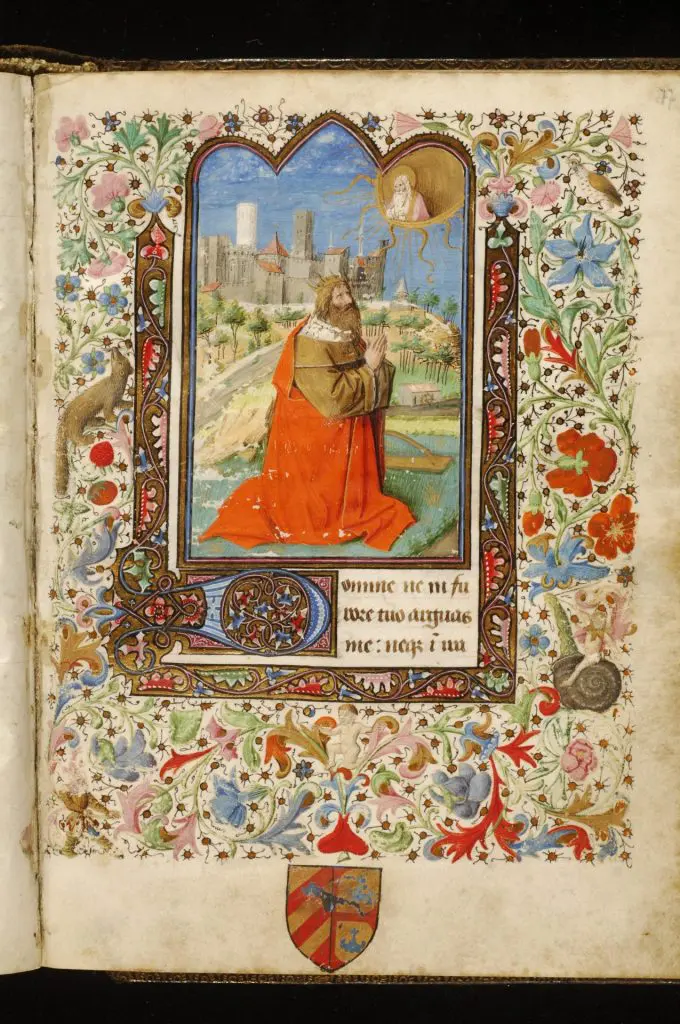 77
Domine ne in fu
rore tuo arguas
me: neqȝ ī ira